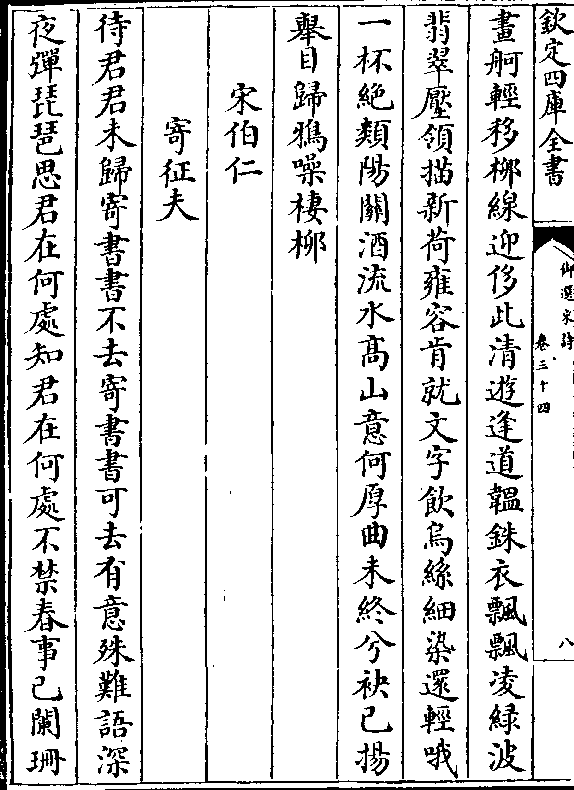 欽定四庫全書
御選宋詩
卷三十四
八
畫舸輕移栁線迎侈此清遊逢道韞銖衣飄飄凌緑波
翡翠壓領描新荷雍容肯就文字飲烏絲細染還輕哦
一杯絶類陽關酒流水髙山意何厚曲未終兮袂已揚
舉目歸鴉噪棲栁
宋伯仁
寄征夫
待君君未歸寄書書不去寄書書可去有意殊難語深
夜彈琵琶思君在何處知君在何處不禁春事已闌珊